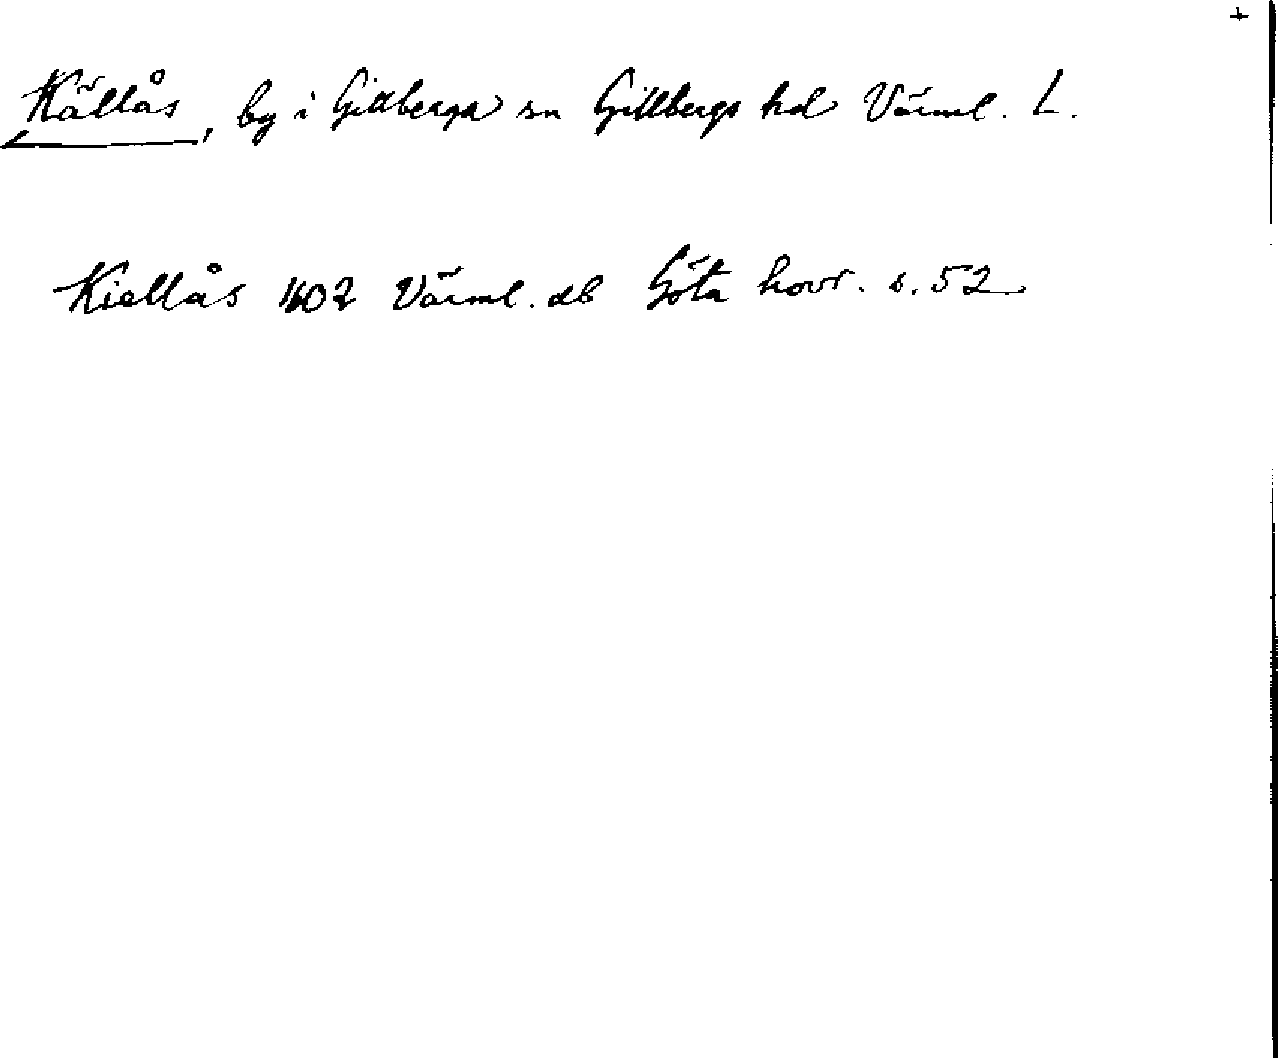 +
Källås, by i Gillberga sn Gillbergs hd Värml. L.
Kiellås 1602 Värml. db Göta hovr. s. 52